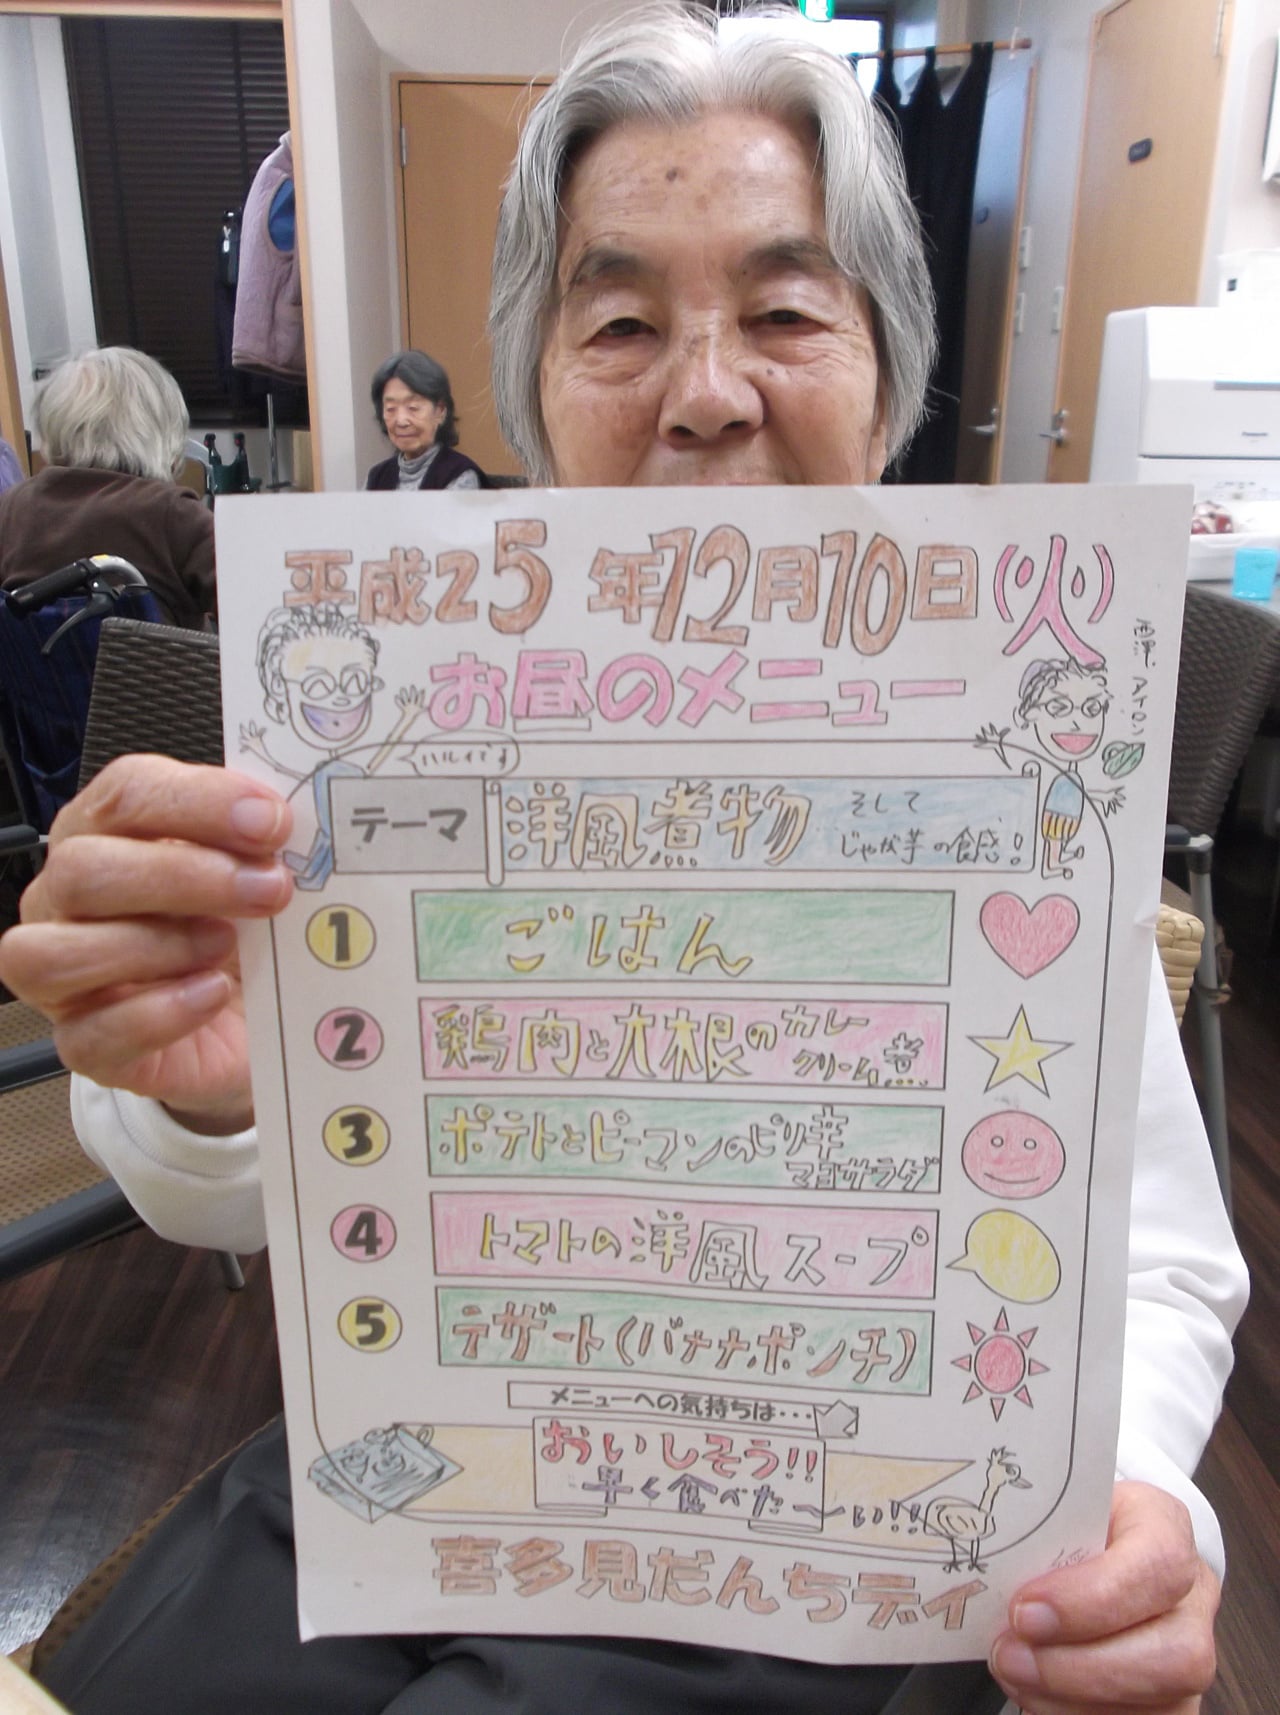 平成25年12月10日(火)
お昼のメニュー
ハルイです
テーマ
洋風煮物
そして
じゃが芋の食感!
1
ごはん
2
鶏肉と大根のカレー
クリーム煮
3
ポテトとピーマンのピリ辛
マヨサラダ
4
トマトの洋風スープ
5
デザート(バナナポンチ)
メニューへの気持ちは・・・
おいしそう!!
早く食べた〜い!!
喜多見だんちデイ
Panasonic